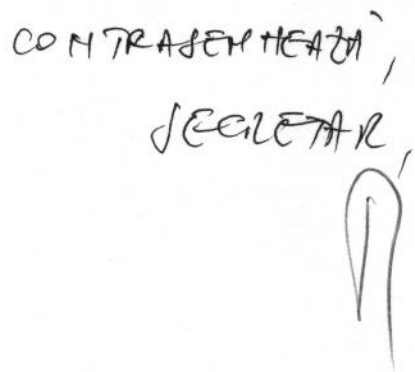 CONTRASEMNEAZĂ,
SECRETAR,